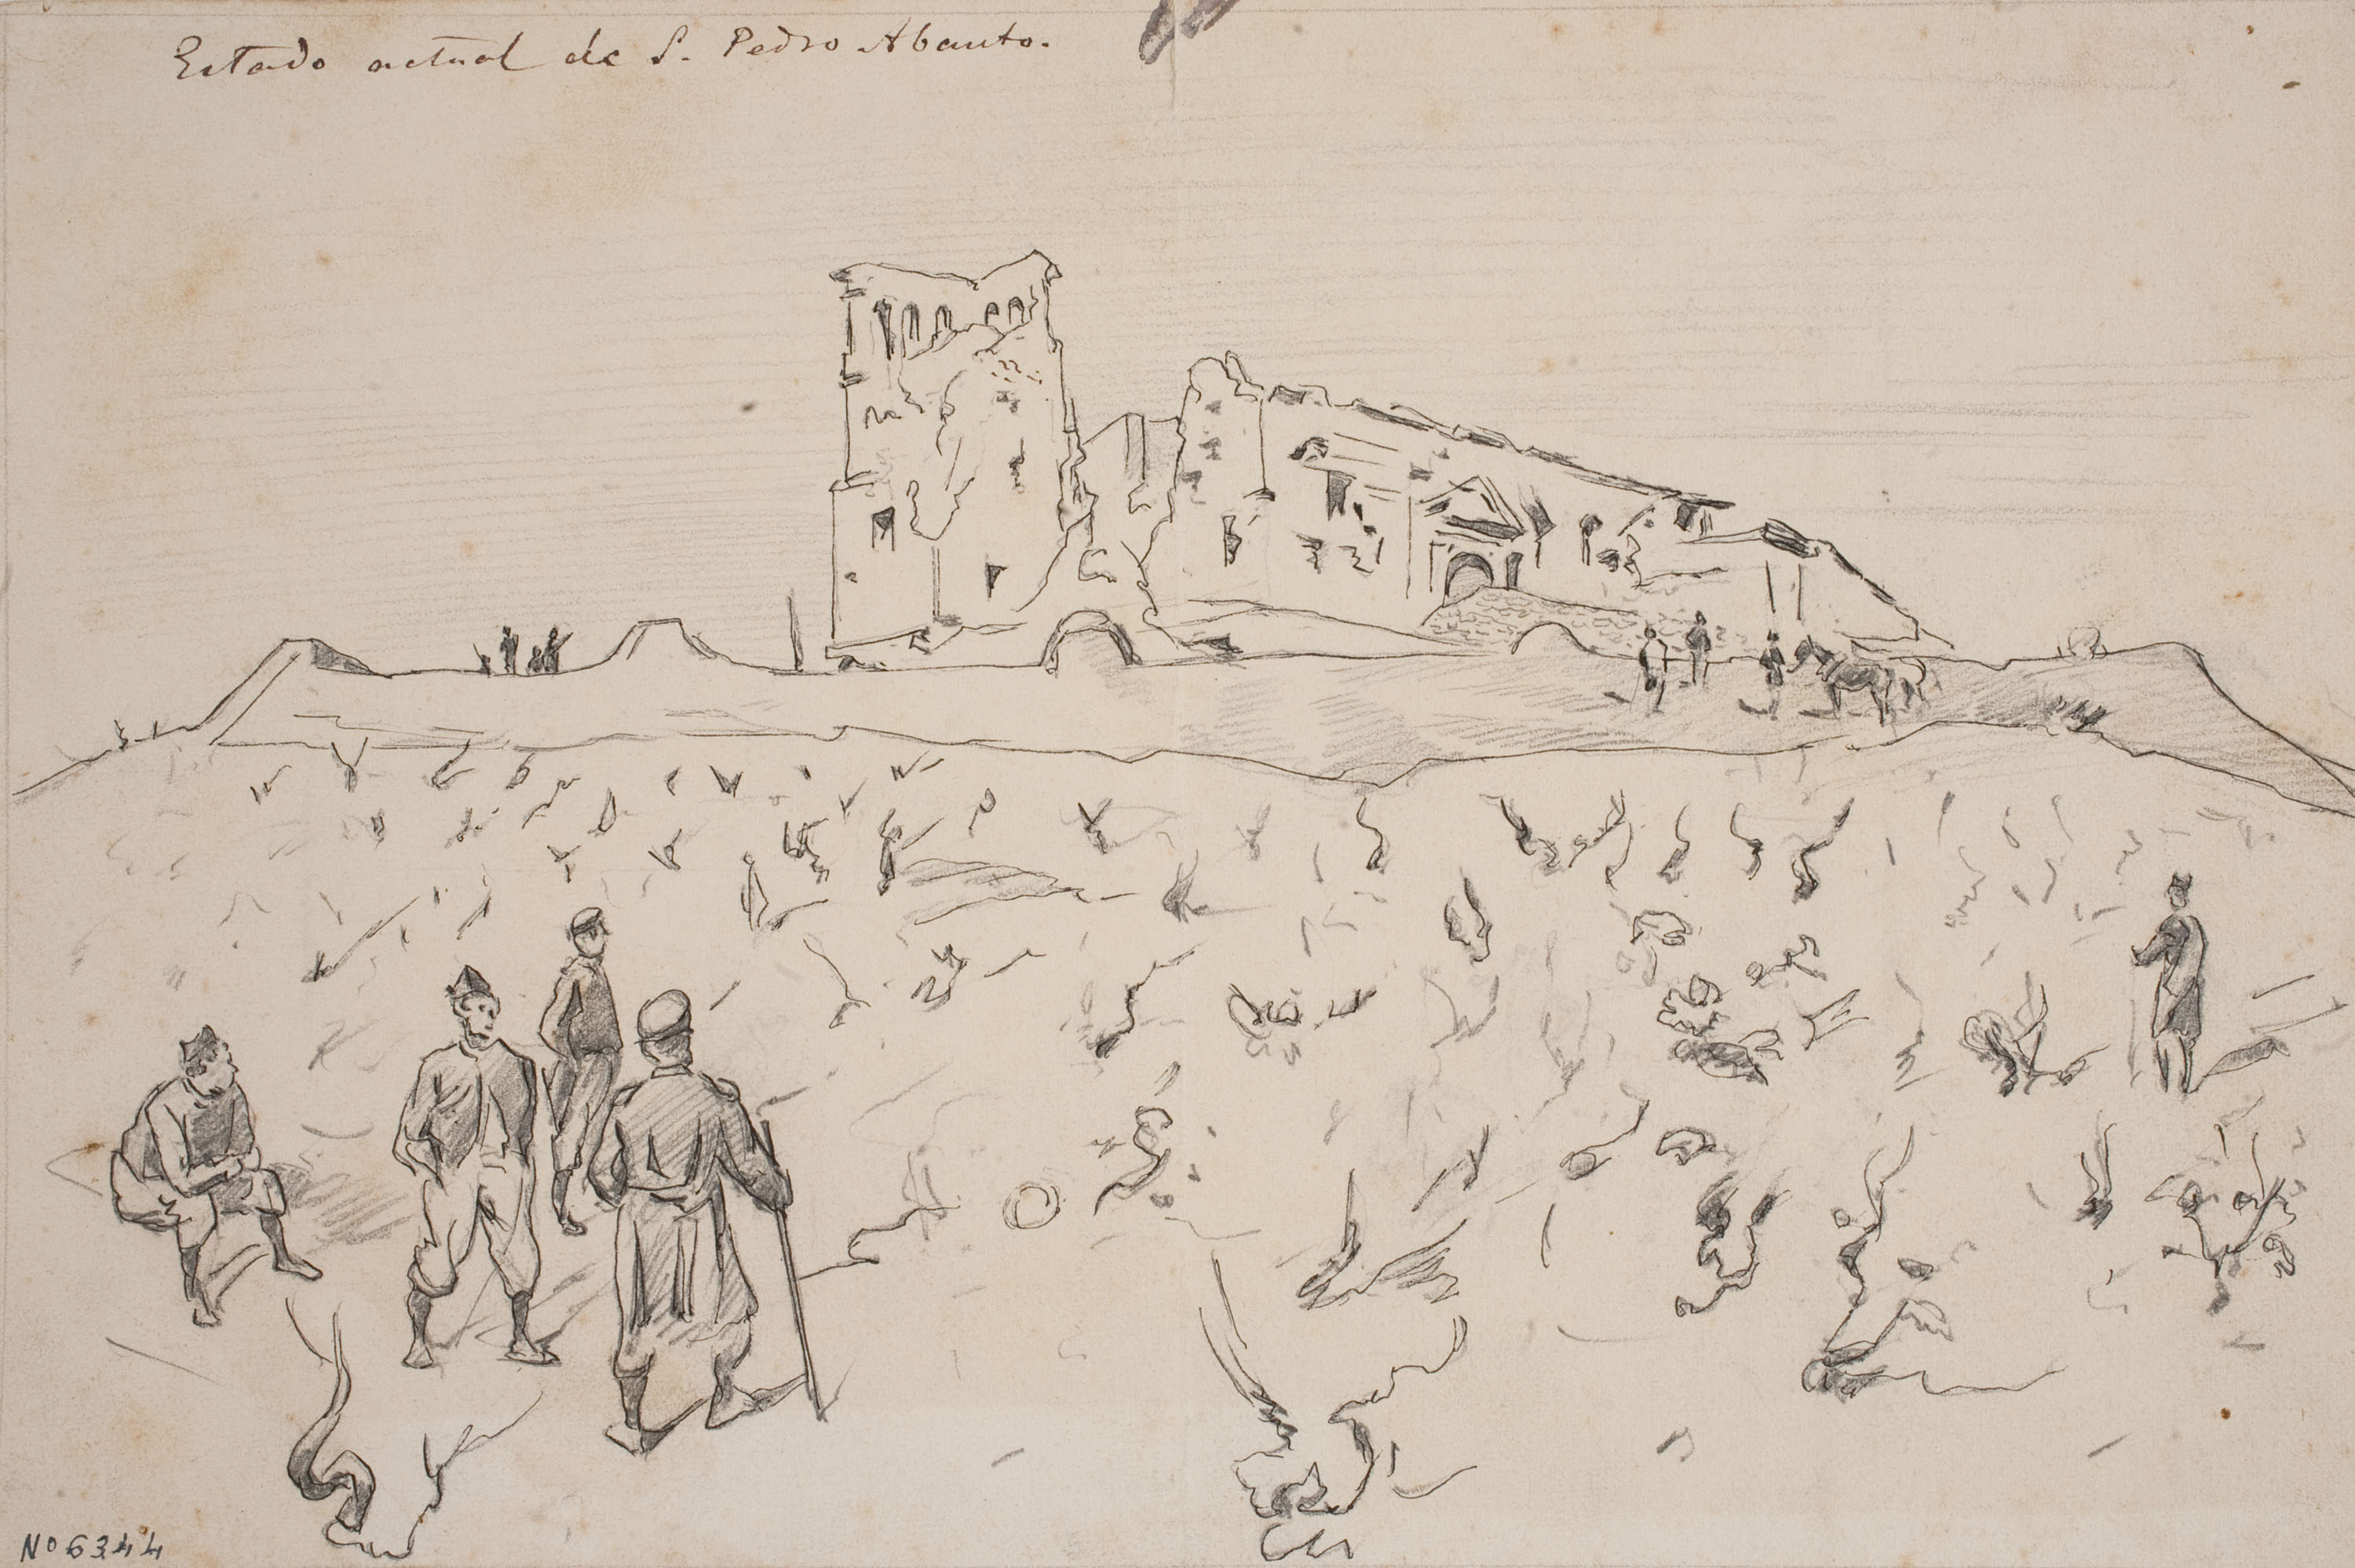 Estado actual de S. Pedro Abanto.
Nº 6344